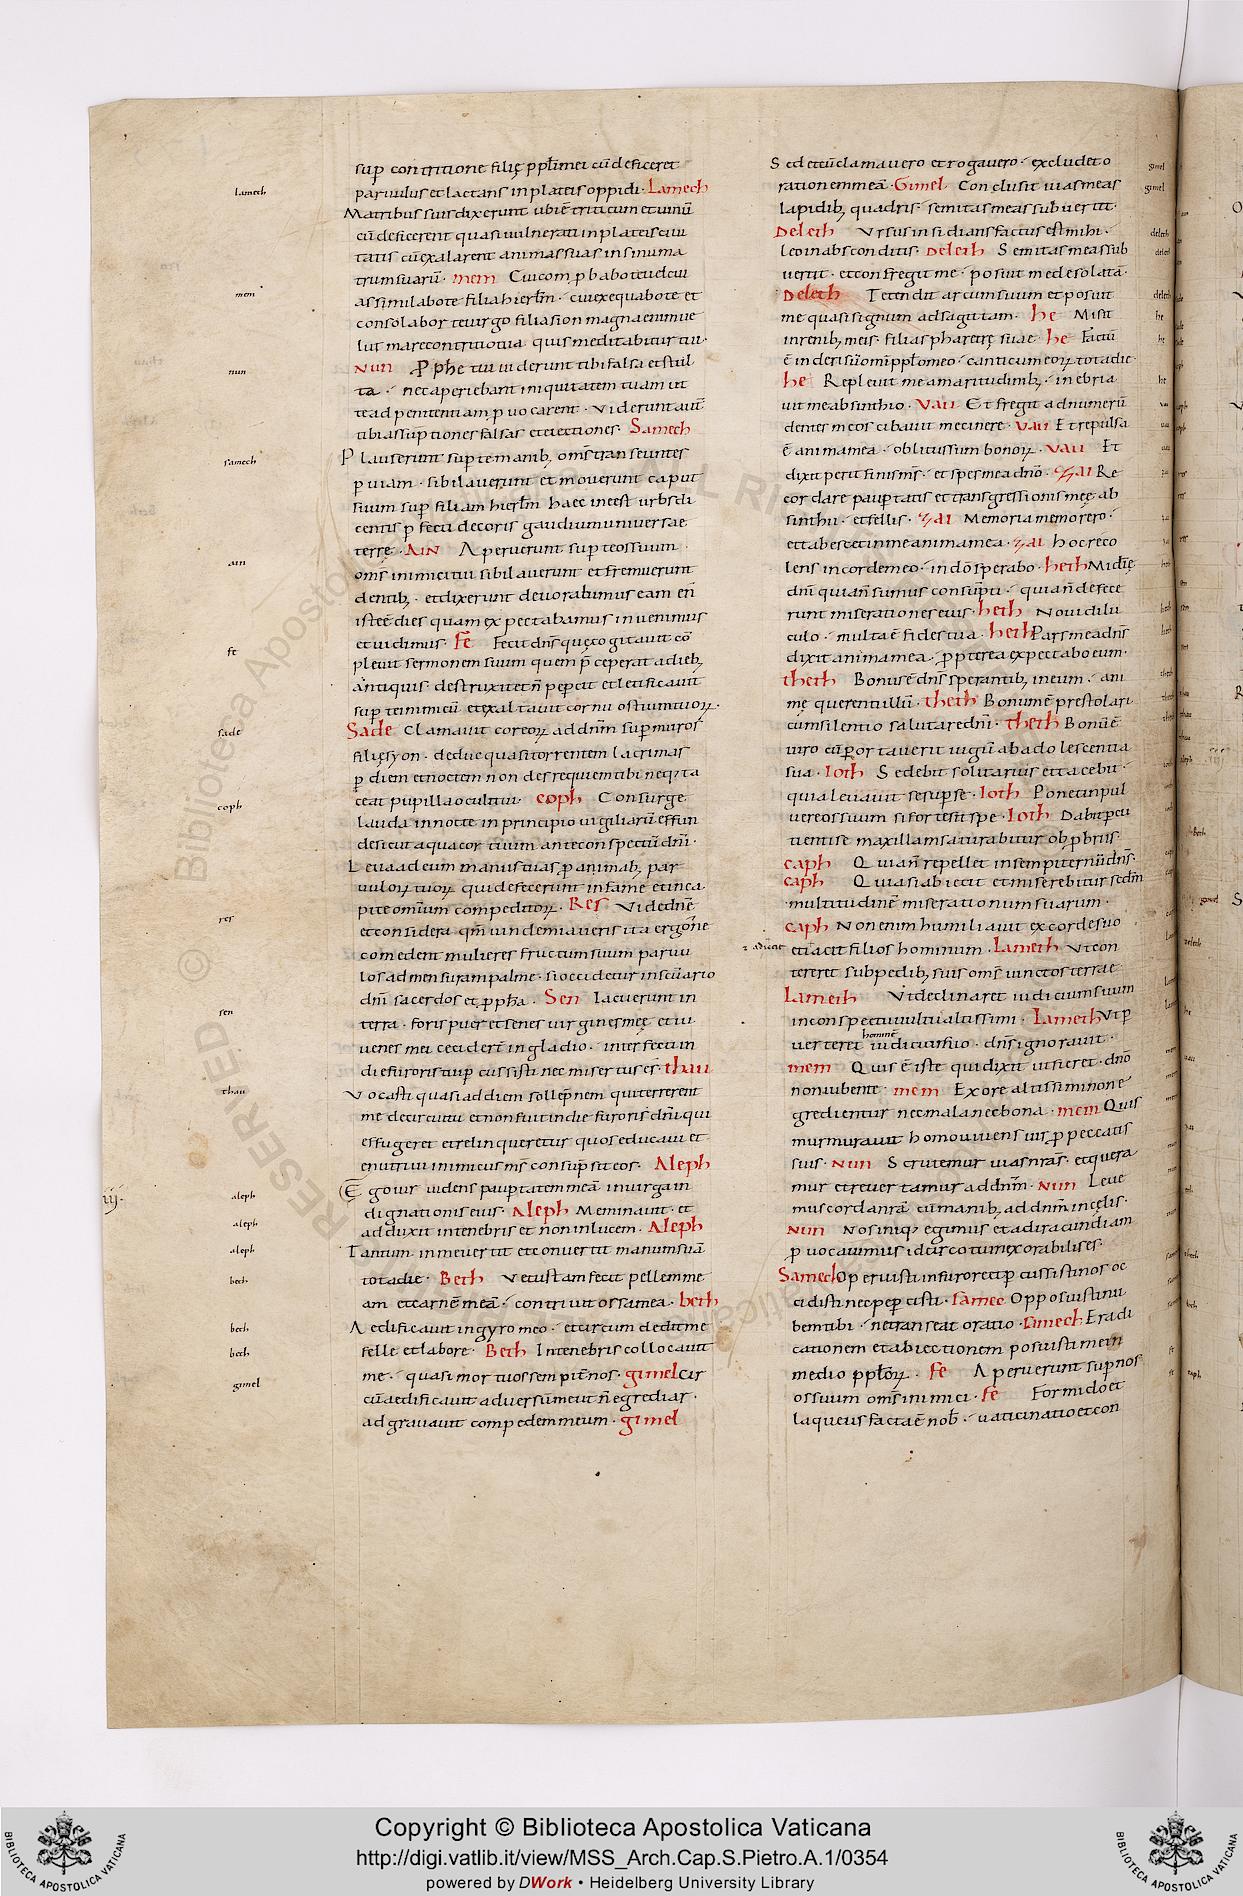 sup contritione filię ppłi mei cū deficeret
parvulus et lactans in plateis oppidi · Lamech
Matribus suis dixerunt ubi ē triticum et vinū
cū deficerent quasi vulnerati in plateis civi
tatis cū exalarent animas suas in sinu ma
trum suarū · mem Cui comp̄babo te vel cui
assimilabo te filia hierłm · cui exequabo te et
consolabor te virgo filia sion magna enim ve
lut mare contritio tua quis meditabitur tui ·
Nun Pphę tui viderunt tibi falsa et stul
ta · nec aperiebant iniquitatem tuam ut
te ad penitentiam p̄vocarent · Viderunt aut̄
tibi assuptiones falsas et eiectiones · Samech
Plauserunt sup te manibȝ oms̄ transeuntes
p viam · sibilaverunt et moverunt caput
suum sup filiam hierłm haec ine est urbs di
centis pfecti decoris gaudium universae
terrę · AIN Aperuerunt sup te os suum
oms̄ inimici tui sibilaverunt et fremuerunt
dentibȝ · et dixerunt devorabimus eam en̄
iste ē dies quam expectabamus invenimus
et vidimus · Fē Fecit dn̄s quę cogitavit cō
plevit sermonem suum quem p̄ceperat a diebȝ
antiquis · destruxit et n̄ pepcit et letificavit
sup te inimicū et exaltavit cornu ostium tuoꝝ ·
Sade Clamavit cor eoꝝ ad dn̄m sup muros
filię syon · deduc quasi torrentem lacrimas
p diem et noctem non des requiem tibi neqȝ ta
ceat pupilla oculi tui · coph Consurge
lauda in nocte in principio vigiliarū effun
de sicut aqua cor tuum ante conspectū dn̄i ·
Leva ad eum manus tuas p̄ animabȝ par
vuloꝝ tuoꝝ qui defecerunt in fame et in ca
pite omium competitoꝝ · Res Vide dn̄e
et considera qm̄ vindemiaveris ita ergone
comedent mulieres fructum suum parvu
los ad mensuram palme · si occidetur in scuario
dn̄i sacerdos et p̄pha · Sen Iacuerunt in
terra · foris puer et senes virgines męę et iu
venes mei cecidert̄ in gladio · interfecti in
die furoris tui pcussisti nec misertus es · thau
Vocasti quasi ad diem sollep̄nem qui terrerent
me de circuitu et non fuit in die furoris dn̄i qui
effugeret et relinqueretur quos educavi et
enutrivi inimicus ms̄ consupsit eos · Aleph
iij · Ego vir videns pauptatem meā in virga in
dignationis eius · Aleph Me minavit · et
adduxit in tenebris et non in lucem · Aleph
Tantum in me vertit et convertit manum suā
tota die · Beth Vetustam fecit pellem me
am et carnē meā · contrivit ossa mea · beth
Aedificavit in gyro meo · et circumdedit me
felle et labore · Beth In tenebris collocavit
me · quasi mortuos sempit̄nos · gimel Cir
cū aedificavit adversū me ut n̄ egrediar ·
adgravavit compedem meum · gimel
lamech
mem
nun
samech
ain
fe
sade
coph
res
sen
thau
aleph
aleph
aleph
beth
beth
beth
gimel
Sed et cū clamavero et rogavero · excludet o
rationem meā · Gimel · Conclusit vias meas
lapidibȝ quadris · semitas meas subvertit ·
Deleth Ursus insidians factus est mihi ·
leo in absconditis · Deleth Semitas meas sub
vertit · et confregit me · posuit me desolatā ·
Deleth Tetendit arcum suum et posuit
me quasi signum ad sagittam · he Misit
in renibȝ meis · filias pharetrę suae · he Factū
ē in derisū omi ppło meo · canticum eoꝝ tota die ·
he Replevit me amaritudinibȝ · inebria
vit me absinthio · Vau Et fregit ad numerū
dentes meos cibavit me cinere · Vau Et repulsa
ē anima mea · oblitus sum bonoꝝ · Vau Et
dixi periit finis ms̄ · et spes mea a dn̄o · Zai Re
cordare pauptatis et transgressionis męę ab
sinthii · et fellis · Zai Memoria memor ero ·
et tabescet in me anima mea · Zai hoc reco
lens in corde meo · in dō sperabo · heth Midię
dn̄i quia n̄ sumus consupti · quia n̄ defece
runt miserationes eius · heth Novi dilu
culo · multa ē fides tua · heth Pars mea dn̄s
dixit anima mea · p̄pterea expectabo eum ·
theth Bonus ē dn̄s sperantibȝ in eum · ani
mę querenti illū · theth Bonum ē prestolari
cum silentio salutare dn̄i · theth Bonū ē
viro cū portaverit iugū ab adolescentia
sua · Ioth Sedebit solitarius et tacebit ·
quia levavit se sup se · Ioth Ponet in pul
vere os suum si forte sit spe · Ioth Dabit pcu
tienti se maxillam saturabitur obp̄briis ·
caph Quia n̄ repellet in sempiternū dn̄s ·
caph Quia si abiecit et miserebitur sedm̄
multitudinē miserationum suarum ·
caph Non enim humiliavit ex corde suo
et iacit filios hominum · Lameth Ut con
tereret sub pedibȝ suis oms̄ vinctos terrae
Lameth Ut declinaret iudicium suum
in conspectu vultu altissimi · Lameth Ut p
verteret hominē in iudicio suo · dn̄s ignoravit ·
mem Quis ē iste qui dixit ut fieret · dn̄o
non iubente · mem Ex ore altissimi non e
gredientur nec mala nec bona · mem Quis
murmuravit homo vivens vir p̄ peccatis
suis · Nun Scrutemur vias nr̄as · et quera
mur et revertamur ad dn̄m · Nun Leve
mus corda nr̄a cū manibȝ ad dn̄m in cęlis ·
Nun Nos iniqȝ egimus et ad iracundiam
p̄vocavimus idcirco tu inexorabilis es ·
Samech Operuisti in furore et pcussisti nos oc
cidisti nec pepcisti · Samec Opposuisti nu
bem tibi · ne transeat oratio · Samech Eradi
cationem et abiectionem posuisti me in
medio ppłoꝝ · Fe Aperuerunt sup nos
os suum oms̄ inimici · Fe Formido et
laqueus facta ē nob̄ · vaticinatio et con
gimel
gimel
deleth
deleth
deleth
he
he
he
Copyright © Biblioteca Apostolica Vaticana
http://digi.vatlib.it/view/MSS_Arch.Cap.S.Pietro.A.1/0354
powered by DWork • Heidelberg University Library
BIBLIOTECA APOSTOLICA VATICANA
BIBLIOTECA APOSTOLICA VATICANA